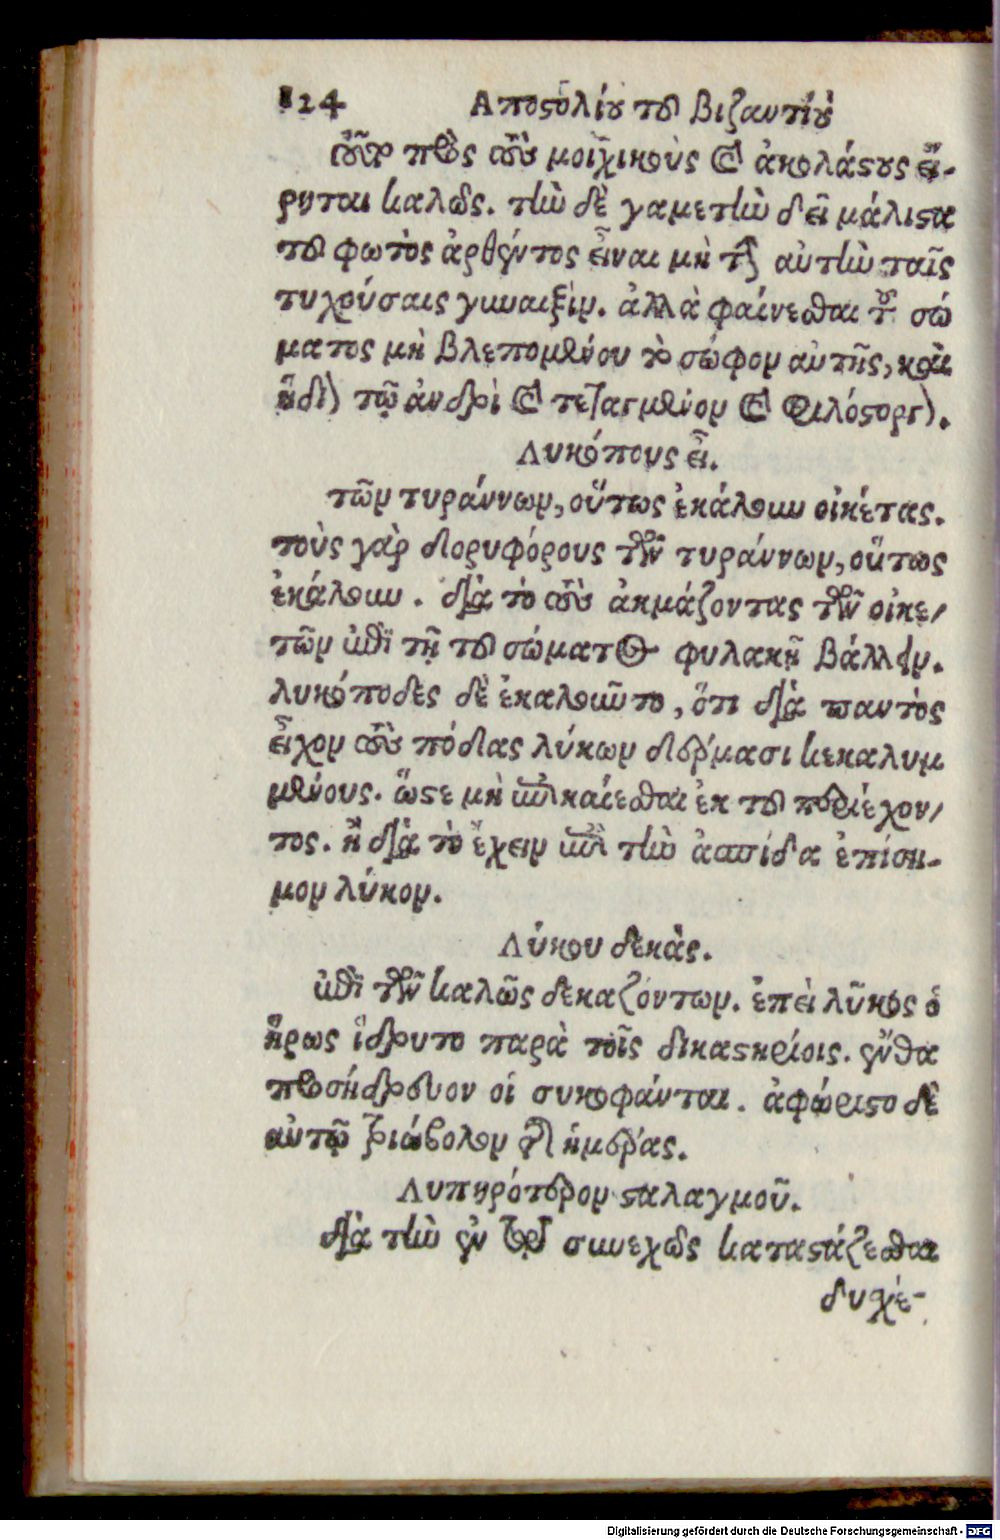 124 Αποστολίου τοῦ βιζαντίου
οὖν πρὸς τοὺς μοιχικοὺς καὶ ἀκολάστους εἴ-
ρηται καλῶς. τὴν δὲ γαμετὴν δεῖ μάλιστα
τοῦ φωτὸς ἀρθέντος εἶναι μὴ τὴν αὐτὴν ταῖς
τυχούσαις γυναιξὶν. ἀλλὰ φαίνεσθαι τοῦ σώ
ματος μὴ βλεπομένου τὸ σώφρον αὐτῆς, καὶ
ἴδιον τῷ ἀνδρὶ καὶ τεταγμένον καὶ φιλόστοργον.
Λυκόπους εἶ.
τῶν τυράννων, οὕτως ἐκάλουν οἰκέτας.
τοὺς γὰρ δορυφόρους τῶν τυράννων, οὕτως
ἐκάλουν. διὰ τὸ τοὺς ἀκμάζοντας τῶν οἰκε/
τῶν ἐπὶ τῇ τοῦ σώματος φυλακῇ βάλλειν.
λυκόποδες δὲ ἐκαλοῦντο, ὅτι διὰ παντὸς
εἶχον τοὺς πόδας λύκων δέρμασι κεκαλυμ
μένους. ὥστε μὴ ἐπικαίεσθαι ἐκ τοῦ περιέχον/
τος. ἢ διὰ τὸ ἔχειν ἐπὶ τὴν ἀσπίδα ἐπίση-
μον λύκον.
Λύκου δεκὰς.
ἐπὶ τῶν καλῶς δεκαζόντων. ἐπεὶ λῦκος ὁ
ἥρως ἵδρυτο παρὰ τοῖς δικαστηρίοις. ἔνθα
προσήδρευον οἱ συκοφάνται. ἀφώριστο δὲ
αὐτῷ τριώβολον τῆς ἡμέρας.
Λυπηρότερον σταλαγμοῦ.
διὰ τὴν ἐν τῷ συνεχῶς καταστάζεσθαι
δυχέ-
Digitalisierung gefördert durch die Deutsche Forschungsgemeinschaft - DFG